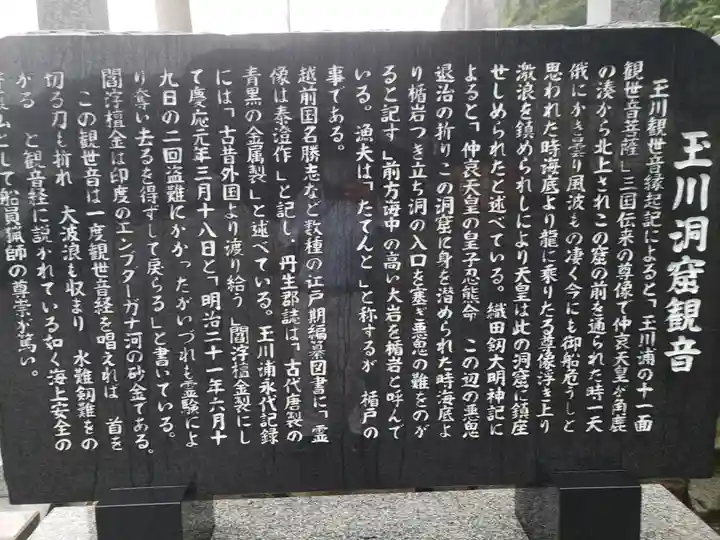 玉川洞窟観音
玉川観世音縁起記によると「玉川浦の十一面
観世音菩薩」三国伝来の尊像で仲哀天皇が角鹿
の湊から北上されこの窟の前を通られた時一天
俄にかき曇り風波もの凄く今にも御船危うしと
思われた時海底より龍に乗りたる尊像浮き上り
激浪を鎮められしにより天皇は此の洞窟に鎮座
せしめられたと述べている。織田劔大明神記に
よると「仲哀天皇の皇子忍熊命 この辺の悪恖
退治の折りこの洞窟に身を潜められた時海底よ
り楯岩つき立ち洞の入口を塞ぎ悪恖の難をのが
ると記す」前方海中の高い大岩を楯岩と呼んで
いる。漁夫は「たてんと」と称するが 楯戸の
事である。
越前国名勝志など数種の江戸期編纂図書に「霊
像は泰澄作」と記し、丹生郡誌は「古代唐製の
青黒の金属製」と述べている。玉川浦永代記録
には「古昔外国より渡り給う」閻浮檀金製にし
て慶応元年三月十八日と「明治二十一年六月十
九日の二回盗難にかかったがいづれも霊験によ
り奪い去るを得ずして戻らる」と書いている。
閻浮檀金は印度のエンブターガナ河の砂金である。
この観世音は一度観世音経を唱えれば 首を
切る刀も折れ 大波浪も収まり 水難剣難をの
がる と観音経に説かれている如く海上安全の
仏として船員猟師の尊崇が篤い。